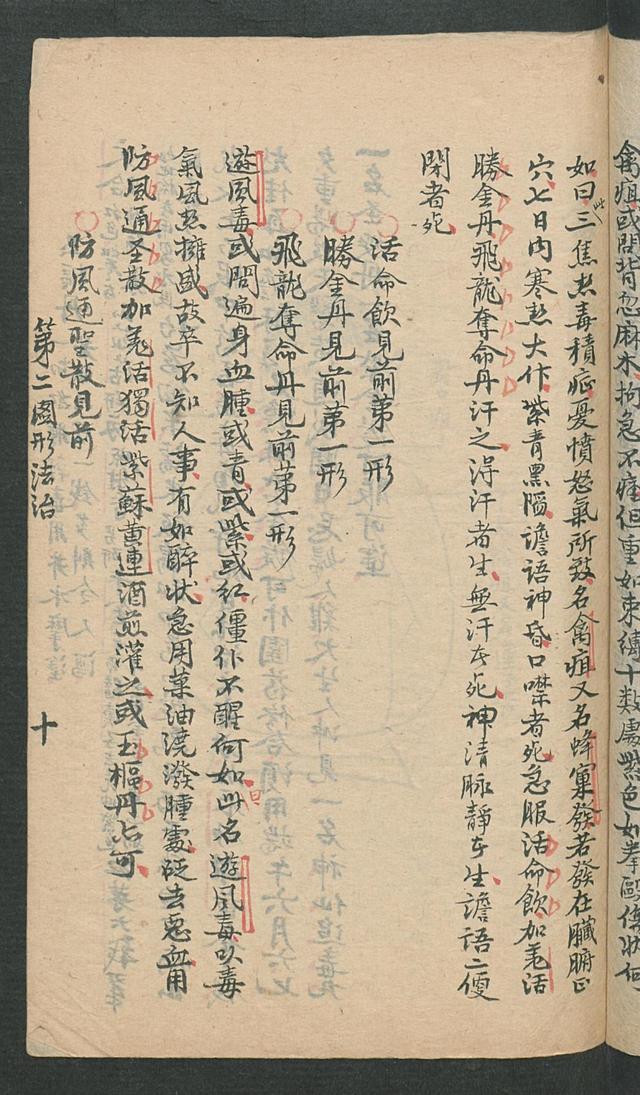 禽疽或問背忽麻木拘急不痛但重如束縛十數處紫色如拳毆傷狀何
如此曰三焦热毒積症憂憤怒氣所致名禽疽又名蜂窠發若發在臟腑正
穴七日内寒热大作紫青黑陷譫語神昏口噤者死急服活命飲加羌活
勝金丹飛龍奪命丹汗之得汗者生無汗者死神清脉靜者生譫語二便
閉者死
活命飲見前第一形
勝金丹見前第一形
飛龍奪命丹見前第一形
遊風毒或問遍身血腫或青或紫或紅僵仆不醒何如曰此名遊風毒以毒
氣風热擁盛故卒不知人事有如醉狀急用菜油澆潑腫處砭去惡血用
防風通圣散加羌活獨活紫蘇黄連酒煎灌之或玉樞丹亦可
防風通聖散見前
第二圖形法治 十